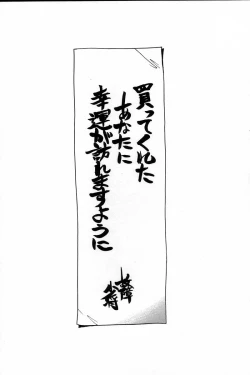 買ってくれた
あなたに
幸運が訪れますように